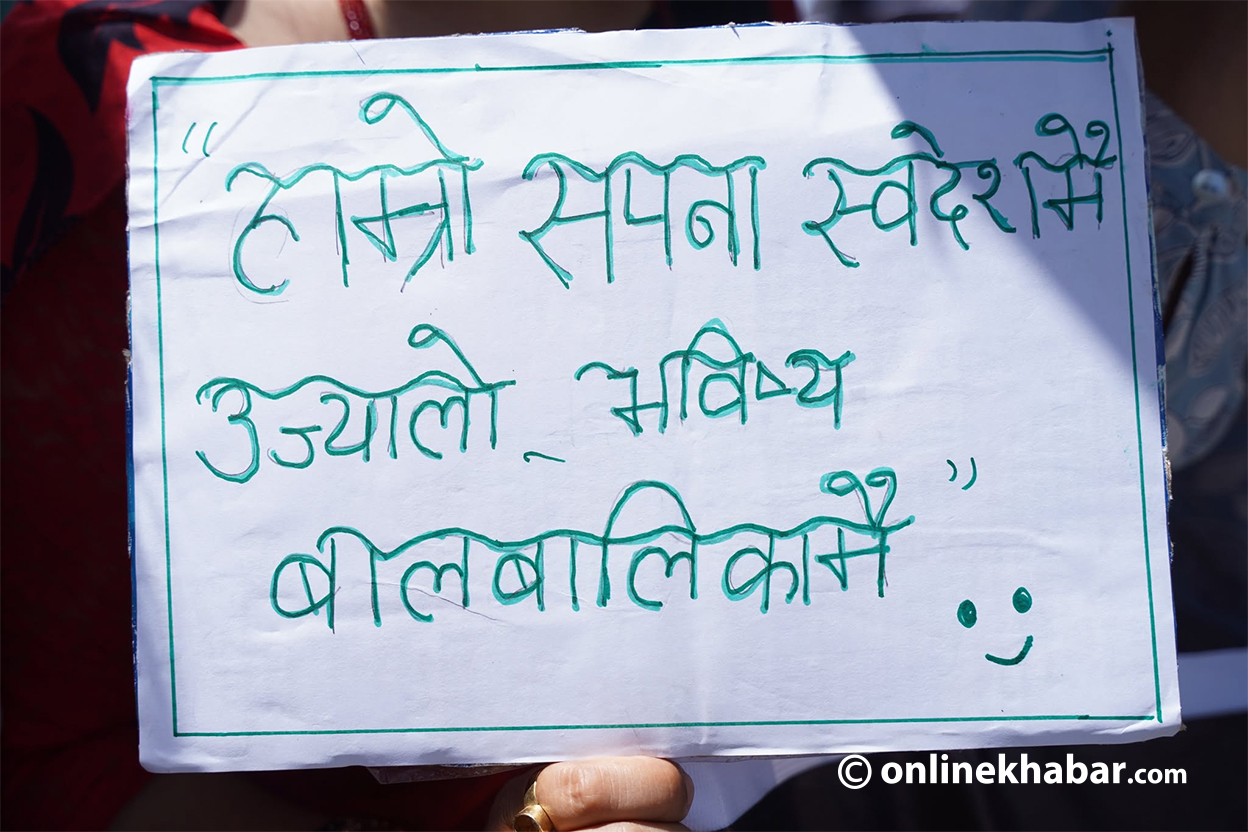 "हाम्रो सपना स्वदेशमै
उज्यालो भविष्य
बालबालिकामै"
© onlinekhabar.com